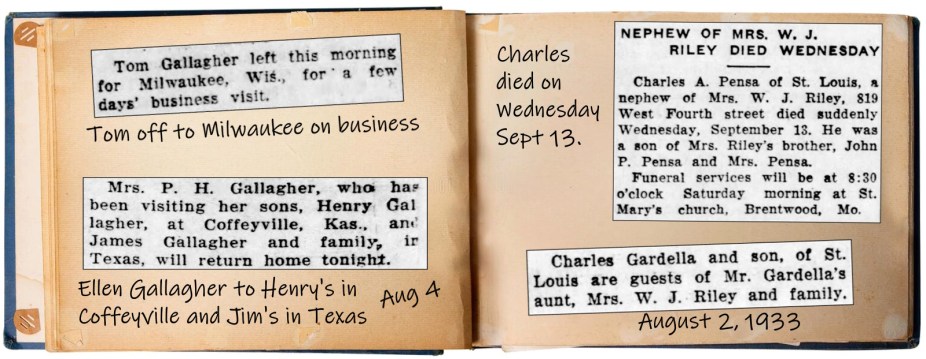 Tom Gallagher left this morning
for Milwaukee, Wis., for a few
days' business visit.
Tom off to Milwaukee on business
Mrs. P. H. Gallagher, who has
been visiting her sons, Henry Gal
lagher, at Coffeyville, Kas., and
James Gallagher and family, in
Texas, will return home tonight.
Ellen Gallagher to Henry's in
Coffeyville and Jim's in Texas
Aug 4
Charles
died on
Wednesday
Sept 13.
NEPHEW OF MRS. W. J.
RILEY DIED WEDNESDAY
Charles A. Pensa of St. Louis, a
nephew of Mrs. W. J. Riley, 819
West Fourth street died suddenly
Wednesday, September 13. He was
a son of Mrs. Riley's brother, John
P. Pensa and Mrs. Pensa.
Funeral services will be at 8:30
o'clock Saturday morning at St.
Mary's church, Brentwood, Mo.
Charles Gardella and son, of St.
Louis are guests of Mr. Gardella's
aunt, Mrs. W. J. Riley and family.
August 2, 1933